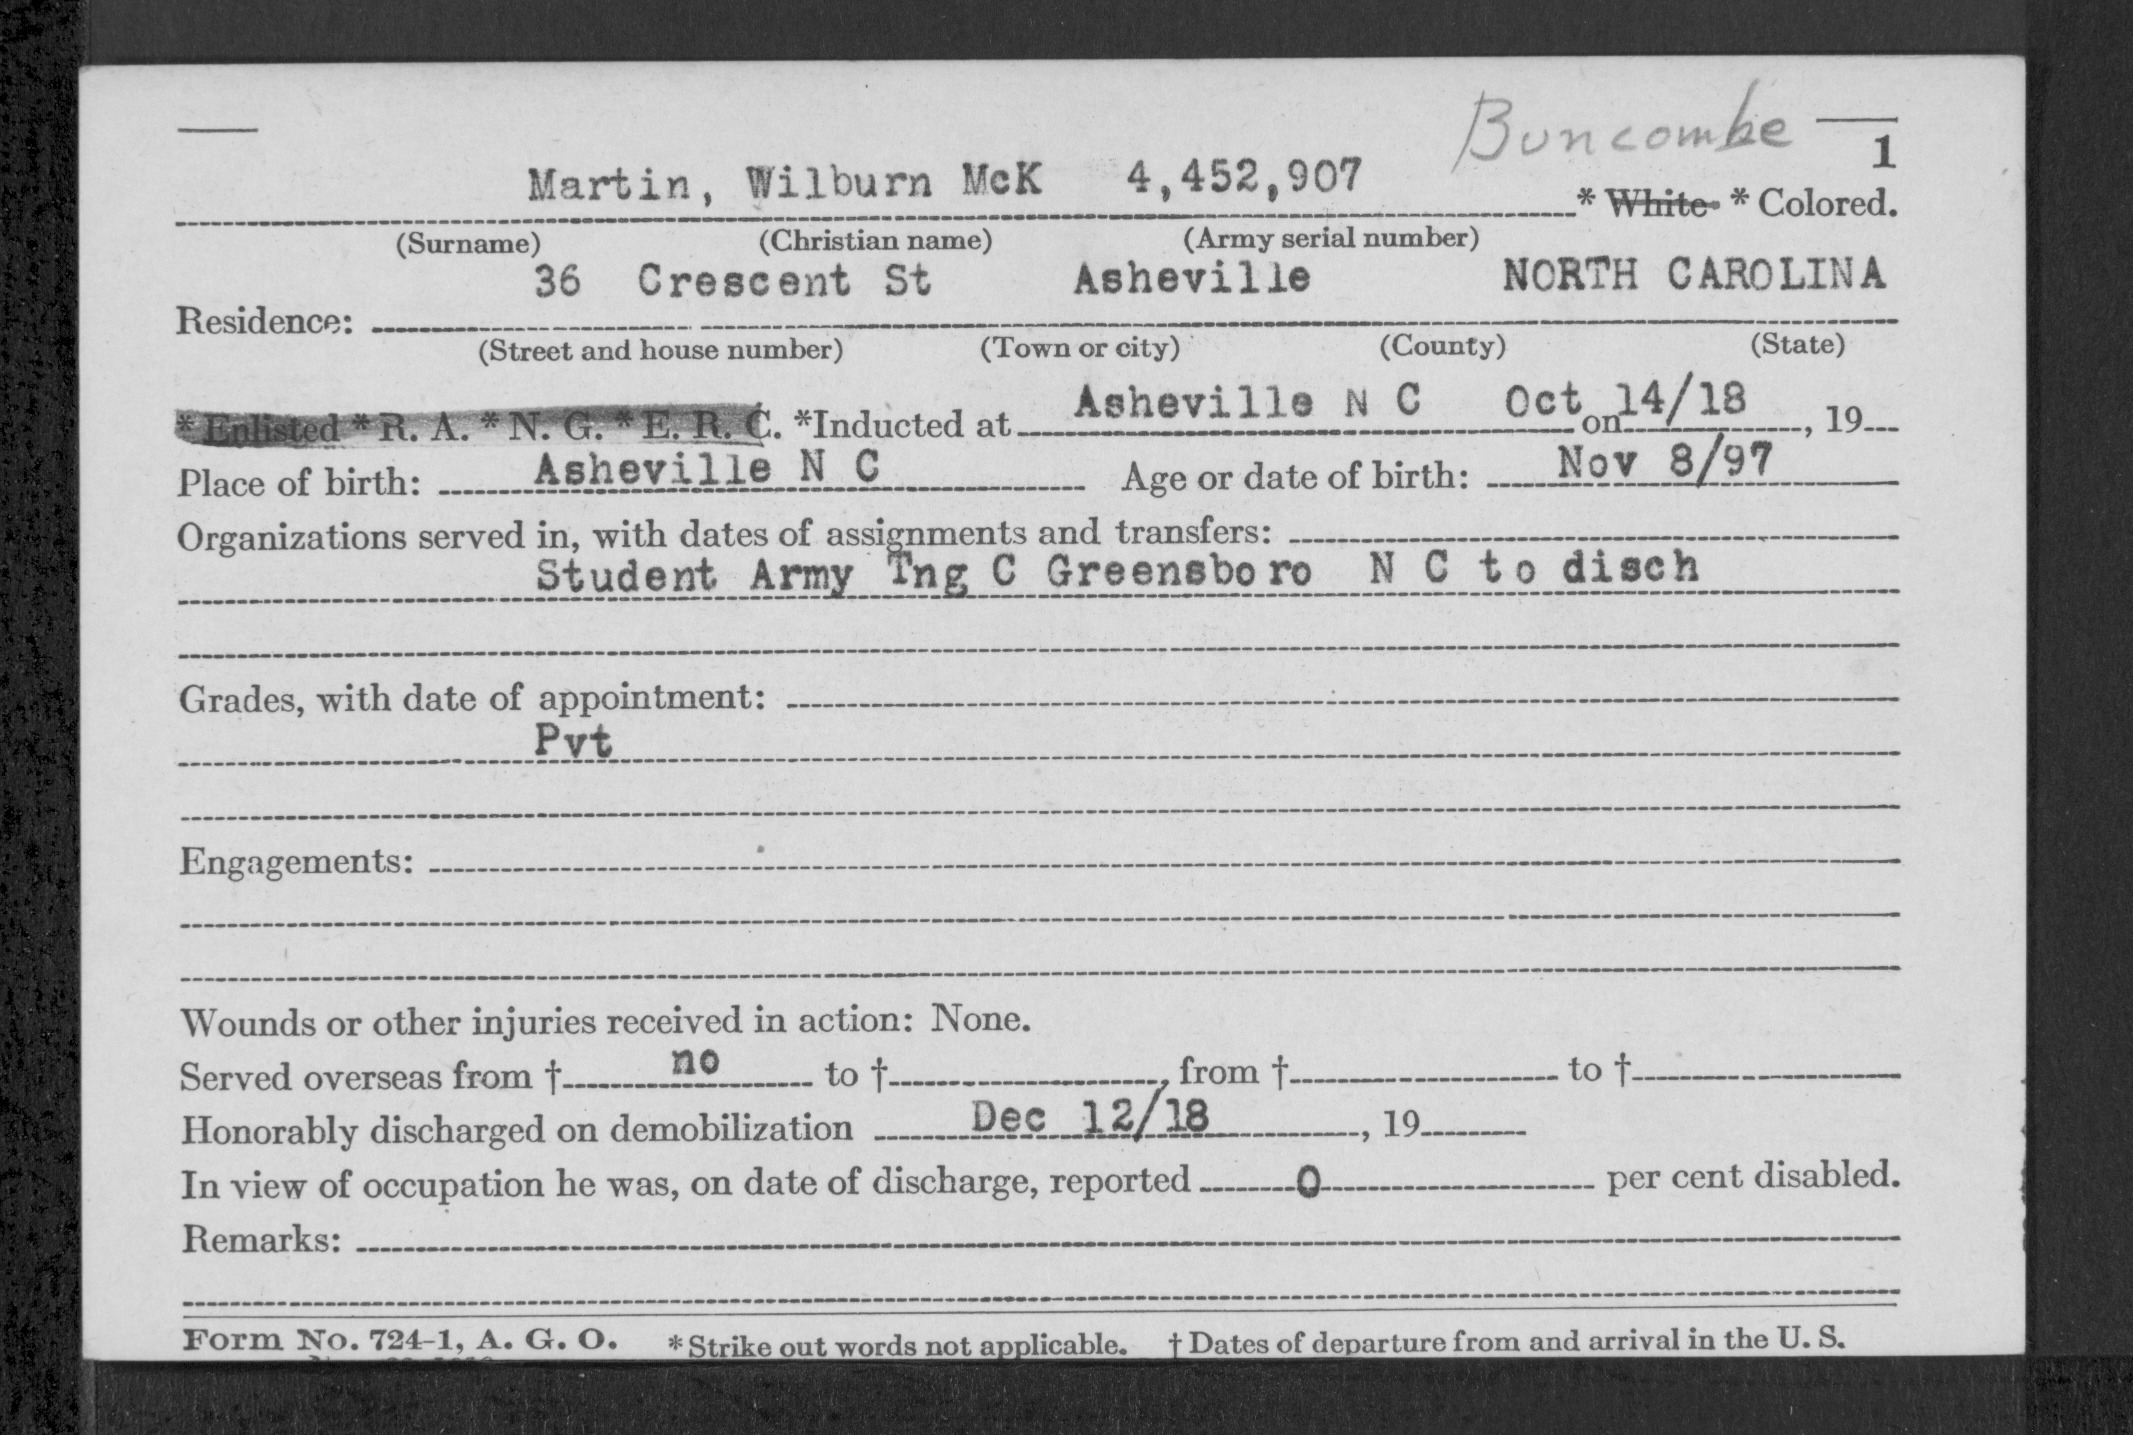 Buncombe
1
Martin, Wilburn McK 4,452,907 * White * Colored.
(Surname) (Christian name) (Army serial number)
36 Crescent St Asheville NORTH CAROLINA
Residence:
(Street and house number) (Town or city) (County) (State)
* Enlisted * R. A. * N. G. * E. R. C. *Inducted at Asheville N C on Oct 14/18, 19
Place of birth: Asheville N C Age or date of birth: Nov 8/97
Organizations served in, with dates of assignments and transfers:
Student Army Tng C Greensboro N C to disch
Grades, with date of appointment:
Pvt
Engagements:
Wounds or other injuries received in action: None.
Served overseas from † no to †, from † to †
Honorably discharged on demobilization Dec 12/18, 19
In view of occupation he was, on date of discharge, reported 0 per cent disabled.
Remarks:
Form No. 724-1, A. G. O. * Strike out words not applicable. † Dates of departure from and arrival in the U. S.